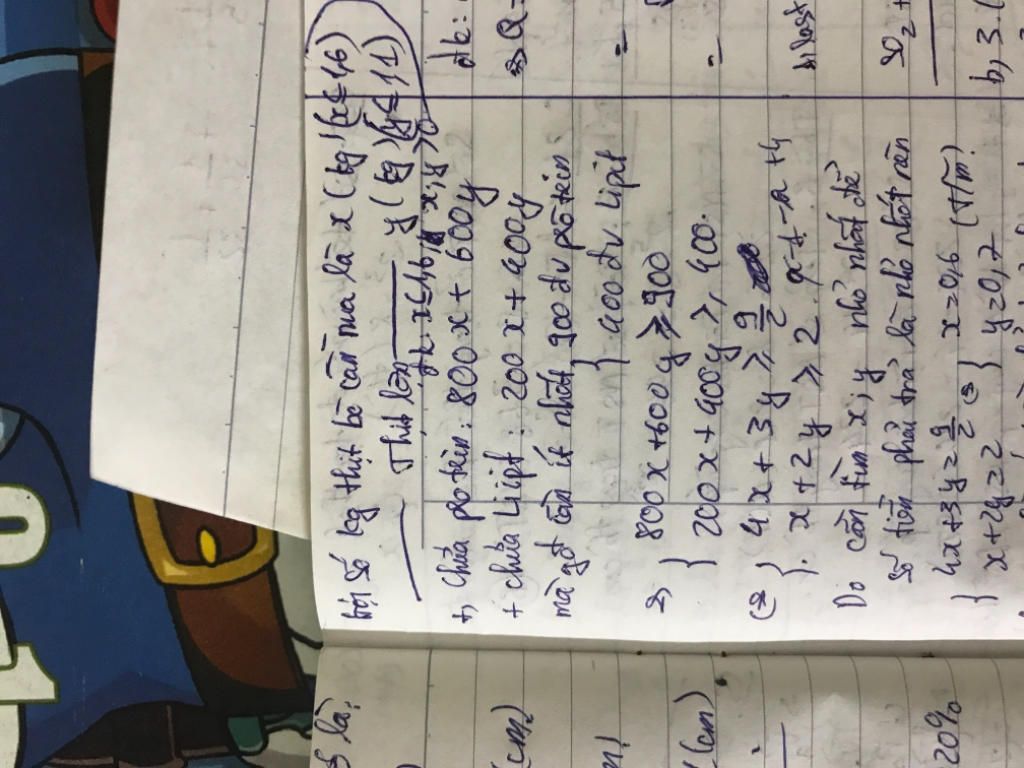 Gọi số kg thịt bò cần mua là x (kg) (x ≤ 1,6)
Thịt lợn y (kg) (y ≤ 1,1)
đk: x ≤ 1,6; x; y > 0
+, Chứa protein: 800x + 600y
+ chứa Lipit: 200x + 400y
mà gđ cần ít nhất 900 dv protein
400 dv. Lipit
=> { 800x + 600y ≥ 900
200x + 400y ≥ 400.
<=> { 4x + 3y ≥ 9/2
x + 2y ≥ 2
Do cần tìm x; y nhỏ nhất để
số tiền phải trả là nhỏ nhất nên
{ 4x + 3y = 9/2
x + 2y = 2
<=> { x = 0,6 (t/m)
y = 0,7
đk:
=> Q =
=
=
b, 3.
là:
(cm)
(cm)
20%
01